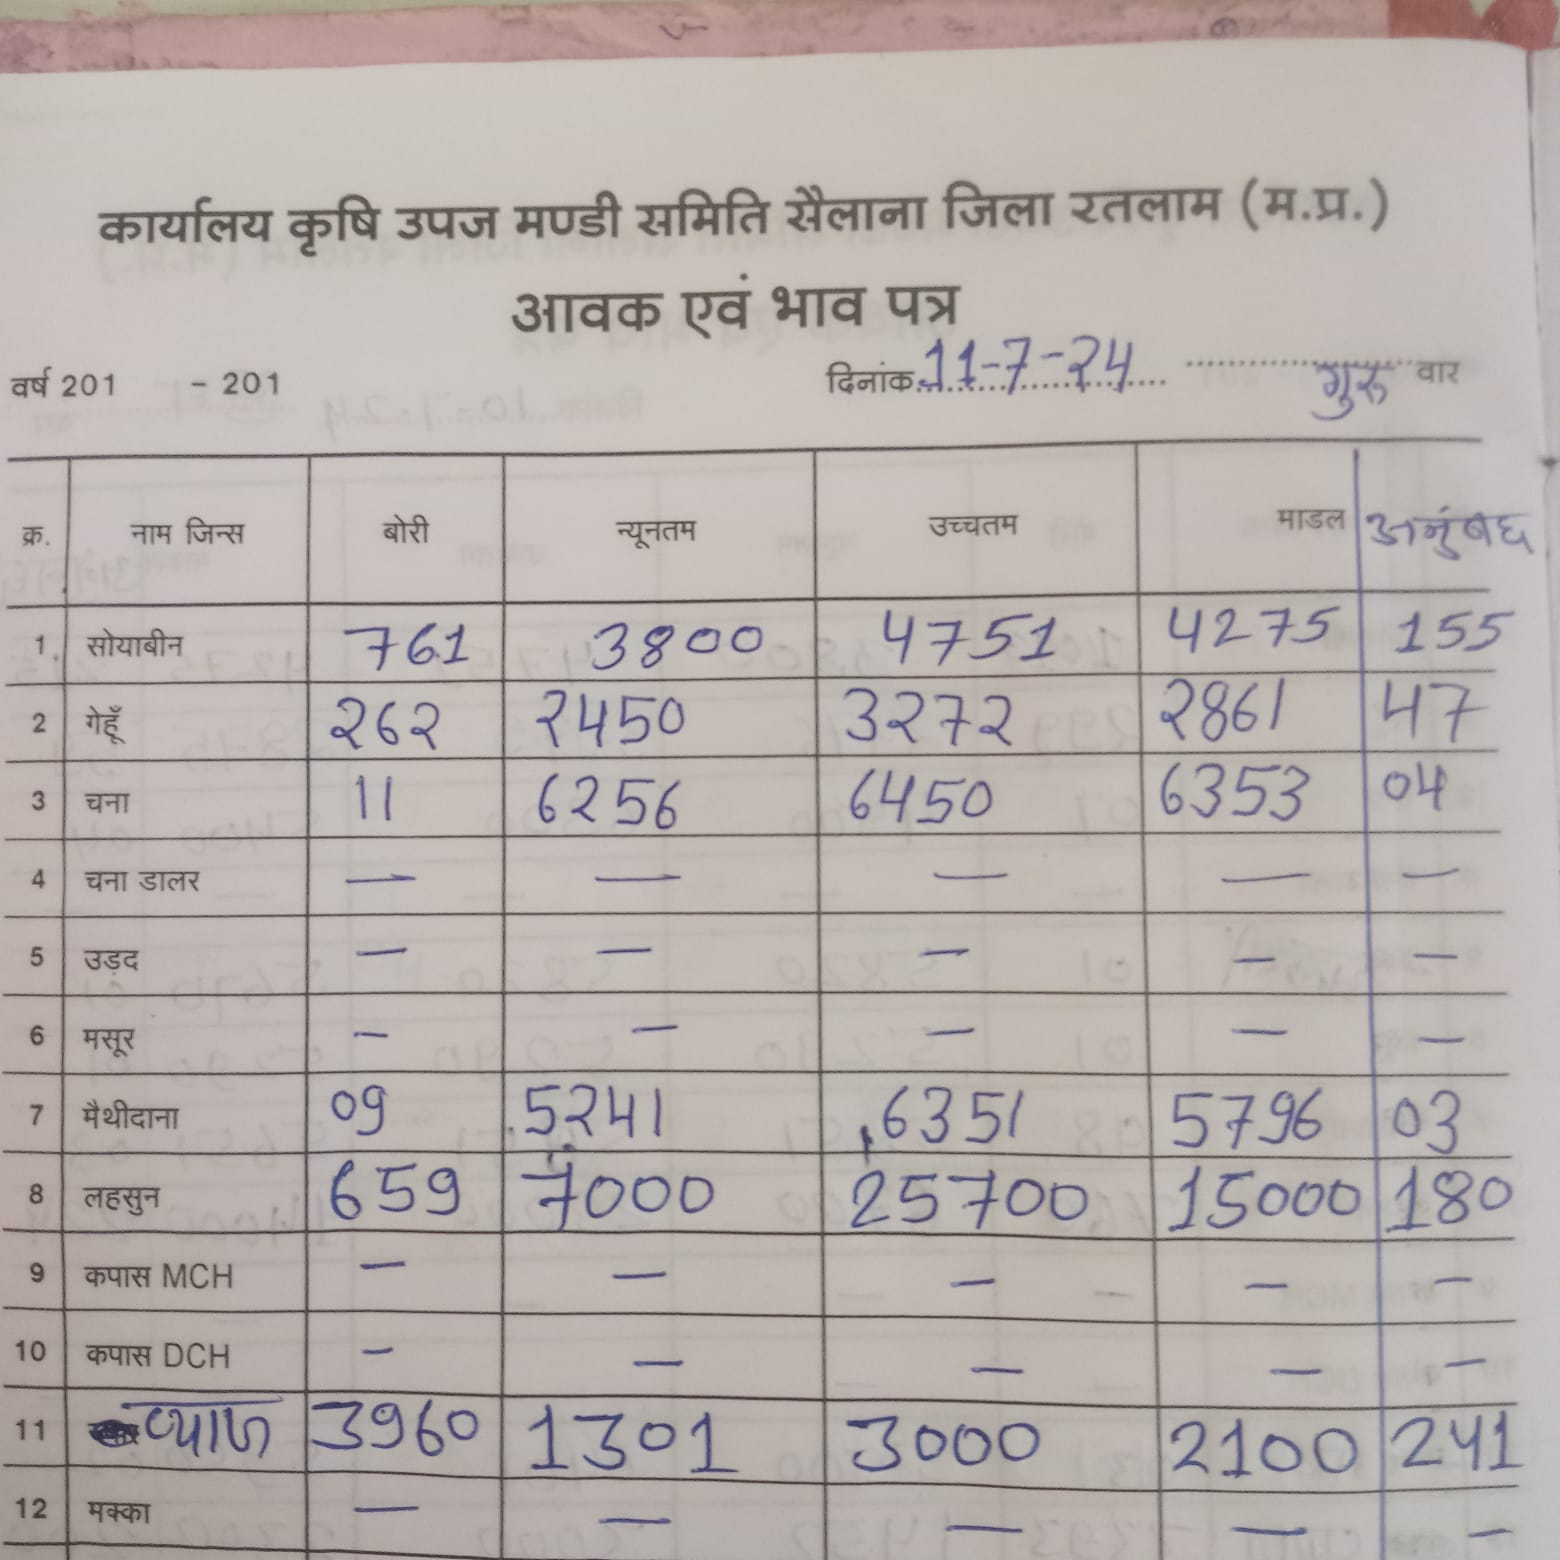 कार्यालय कृषि उपज मण्डी समिति सैलाना जिला रतलाम (म.प्र.)
आवक एवं भाव पत्र
वर्ष 201 - 201 दिनांक 11-7-24 गुरु वार
क्र. नाम जिन्स बोरी न्यूनतम उच्चतम माडल अनुंबध
1. सोयाबीन 761 3800 4751 4275 155
2 गेहूँ 262 2450 3272 2861 47
3 चना 11 6256 6450 6353 04
4 चना डालर — — — — —
5 उड़द — — — — —
6 मसूर — — — — —
7 मैथीदाना 09 5241 6351 5796 03
8 लहसुन 659 7000 25700 15000 180
9 कपास MCH — — — — —
10 कपास DCH — — — — —
11 प्याज 3960 1301 3000 2100 241
12 मक्का — — — — —